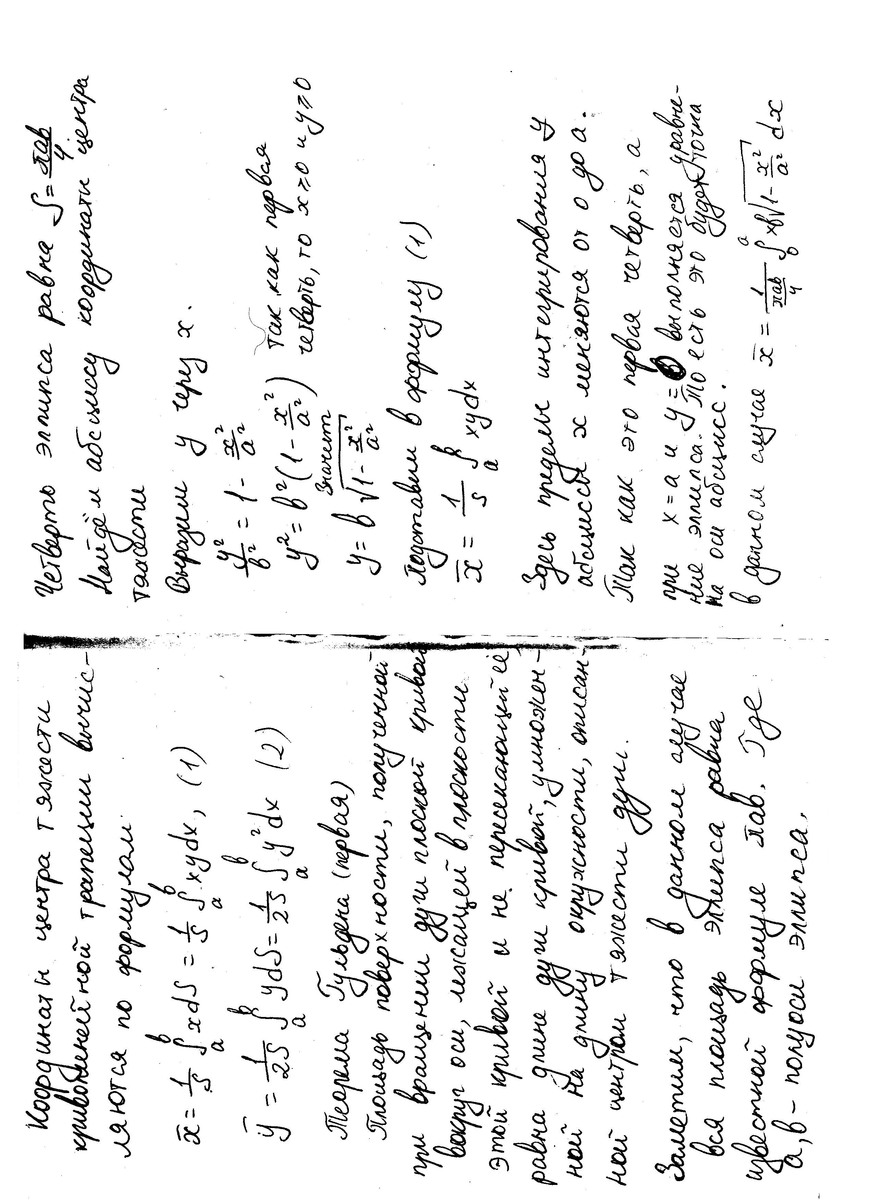 Координаты центра тяжести
криволинейной трапеции вычис-
ляются по формулам
x̄ = 1/S ∫ₐᵇ x dS = 1/S ∫ₐᵇ xydx, (1)
ȳ = 1/2S ∫ₐᵇ ydS = 1/2S ∫ₐᵇ y²dx (2)
Теорема Гульдена (первая)
Площадь поверхности, полученной
при вращении дуги плоской кривой
вокруг оси, лежащей в плоскости
этой кривой и не пересекающей её
равна длине дуги кривой, умножен-
ной на длину окружности, описан-
ной центром тяжести дуги.
Заметим, что в данном случае
вся площадь эллипса равна
известной формуле πab. Где
a, b – полуоси эллипса.
Четверть эллипса равна S = πab/4
Найдём абсциссу координаты центра
тяжести
Выразим y через x.
y²/b² = 1 - x²/a²
y² = b²(1 - x²/a²) так как первая
четверть, то x ≥ 0 и y ≥ 0
Значит
y = b√(1 - x²/a²)
Подставим в формулу (1)
x̄ = 1/S ∫ₐᵇ xydx
Здесь пределы интегрирования у
абсциссы x меняются от 0 до a.
Так как это первая четверть, а
при x = a и y = 0 выполняется уравне-
ние эллипса. То есть это будет точка
на оси абсцисс.
в данном случае x̄ = 1/(πab/4) ∫₀ᵃ xb√(1 - x²/a²) dx